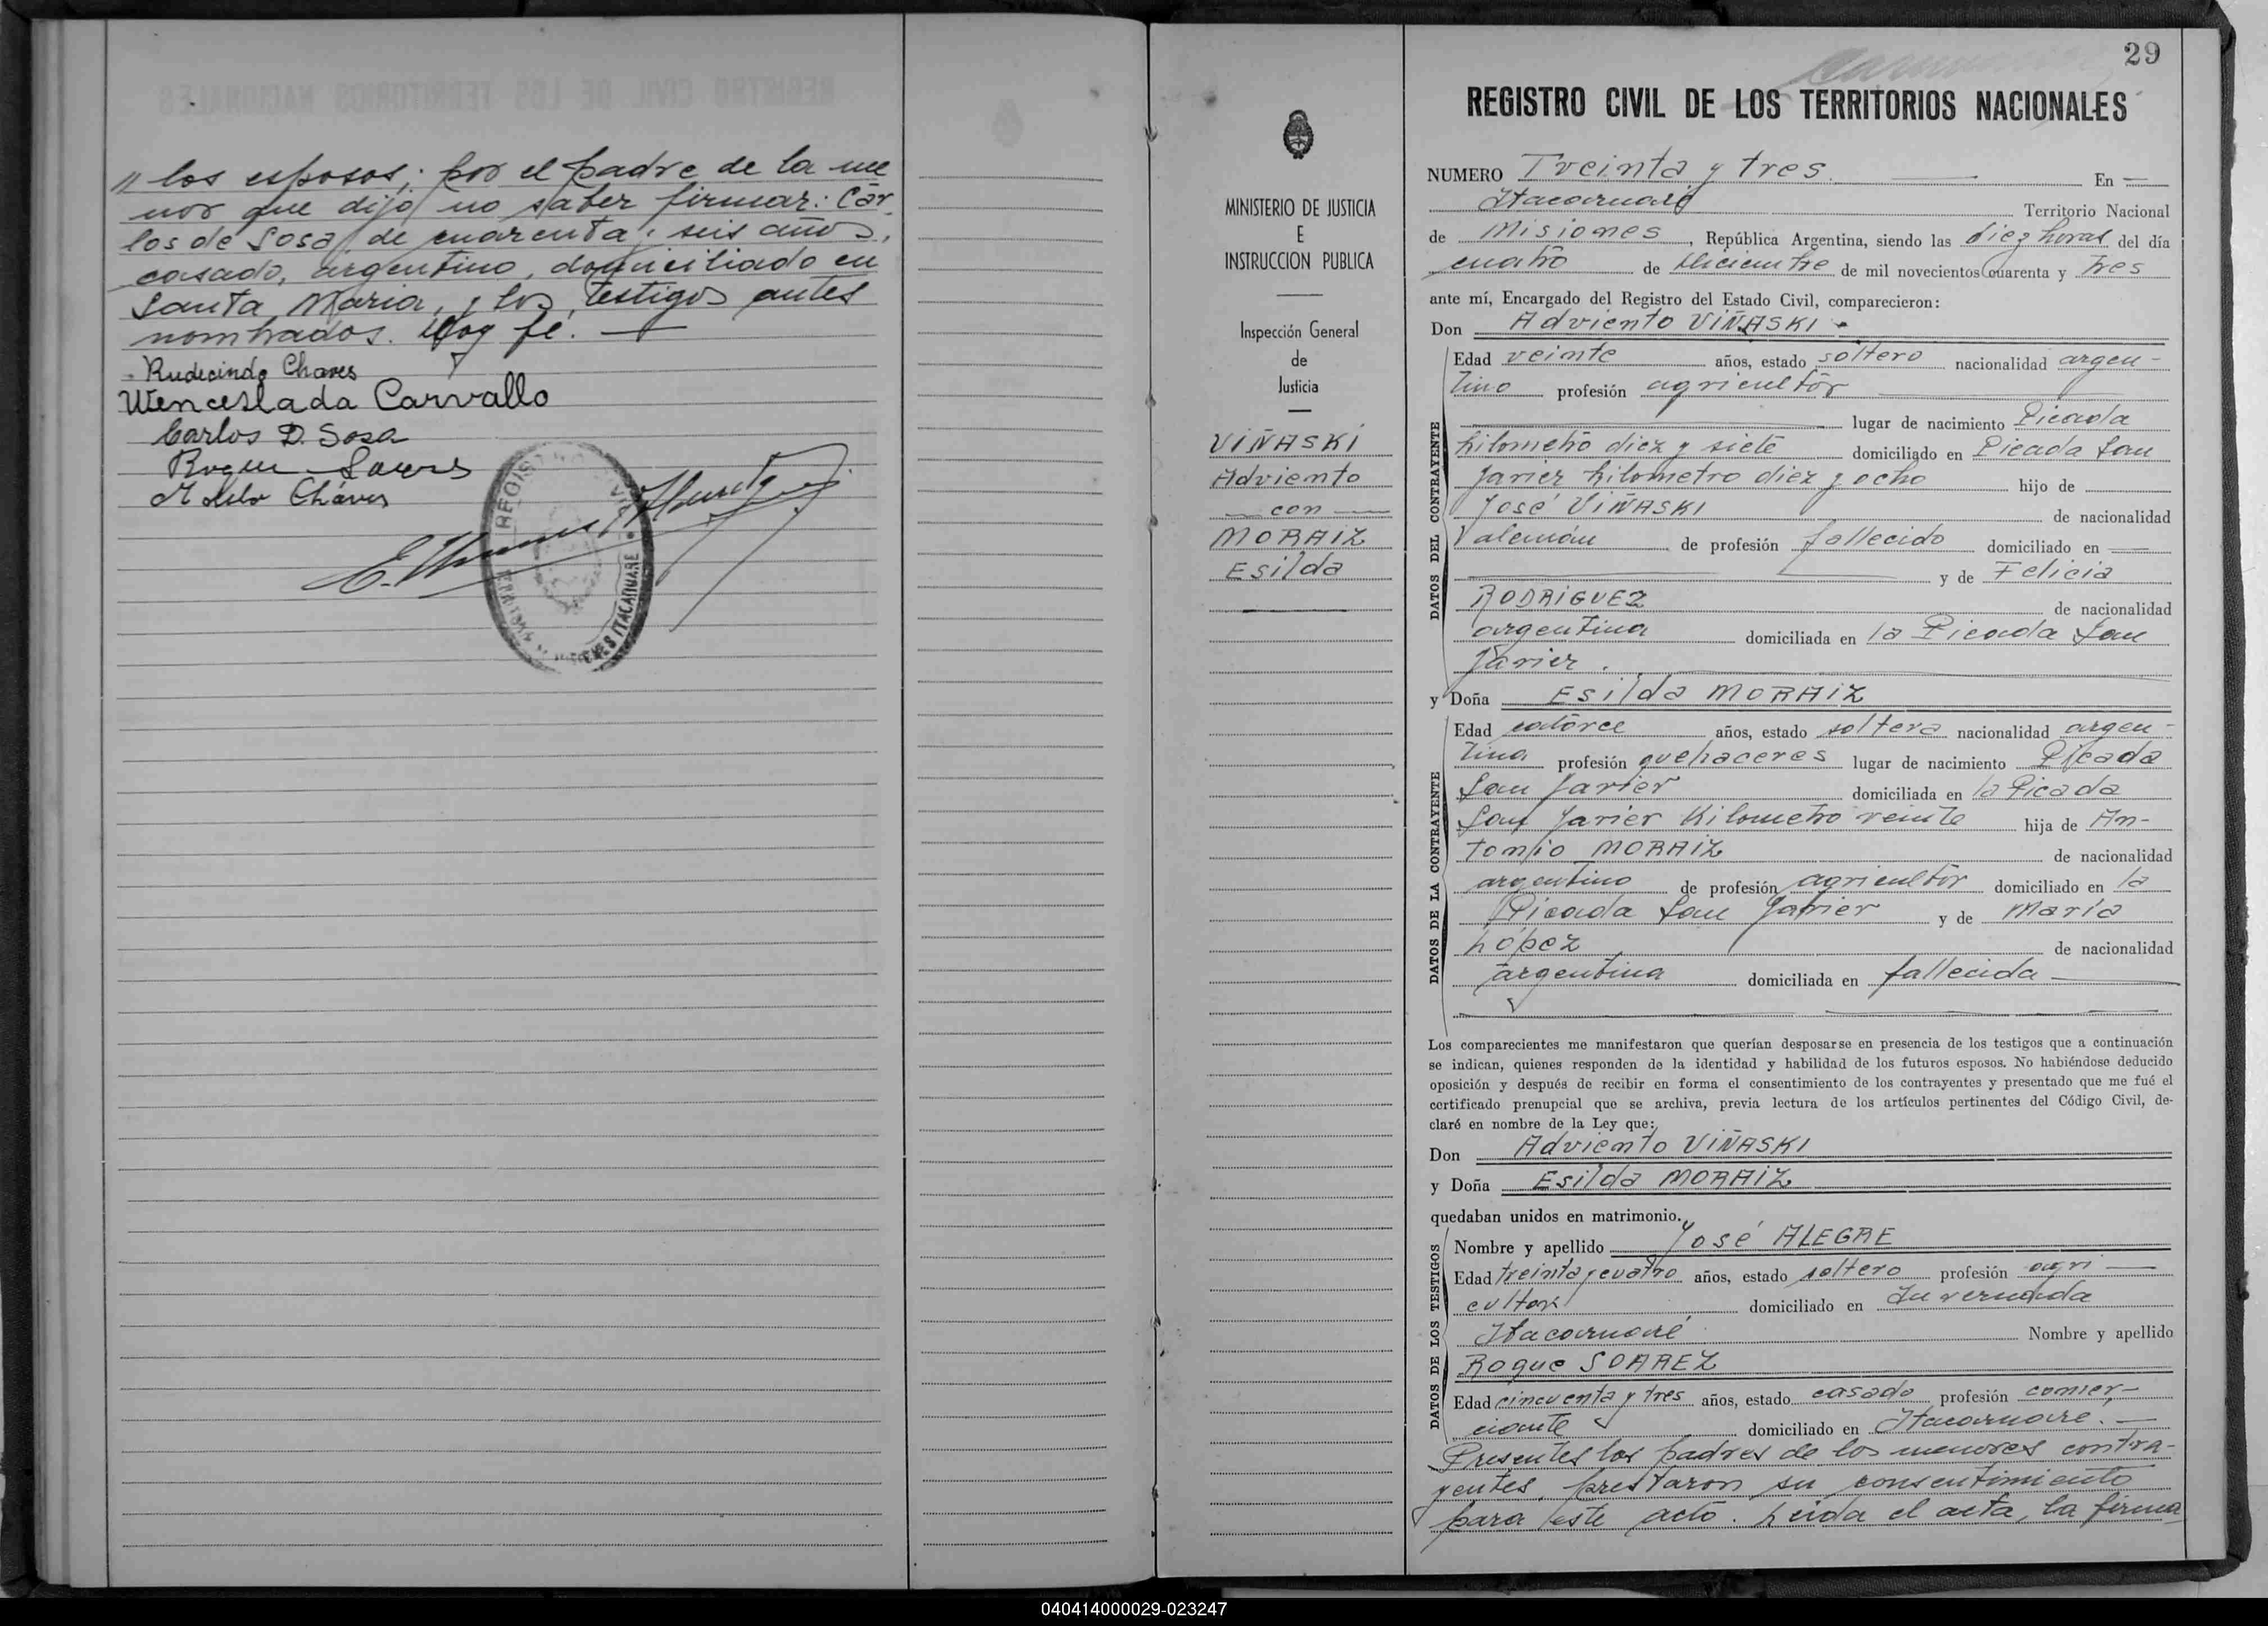 " los esposos; por el padre de la me
nor que dijo no saber firmar: Car
los de Sosa, de cuarenta y seis años,
casado, argentino, domiciliado en
Santa Maria, y los testigos antes
nombrados. Doy fé. —
Rudecindo Chaves
Wenceslada Carvallo
Carlos D. Sosa
Roque Soares
Chaves
REGISTRO CIVIL
ITACARUARE
MINISTERIO DE JUSTICIA
E
INSTRUCCION PUBLICA
Inspección General
de
Justicia
VIÑASKI
Adviento
— con —
MORAIZ
Esilda
29
REGISTRO CIVIL DE LOS TERRITORIOS NACIONALES
NUMERO Treinta y tres. — En —
Itacaruaré Territorio Nacional
de Misiones, República Argentina, siendo las diez horas del día
cuatro de diciembre de mil novecientos cuarenta y tres
ante mí, Encargado del Registro del Estado Civil, comparecieron:
Don Adviento VIÑASKI
DATOS DEL CONTRAYENTE
Edad veinte años, estado soltero nacionalidad argen-
tino profesión agricultor
lugar de nacimiento Picada
Kilometro diez y siete domiciliado en Picada San
Javier kilometro diez y ocho hijo de
José VIÑASKI de nacionalidad
alemán de profesión fallecido domiciliado en —
— y de Felicia
RODRIGUEZ de nacionalidad
argentina domiciliada en la Picada San
Javier.
y Doña Esilda MORAIZ
DATOS DE LA CONTRAYENTE
Edad catorce años, estado soltera nacionalidad argen-
tina profesión quehaceres lugar de nacimiento Picada
San Javier domiciliada en la Picada
San Javier Kilometro veinte hija de An-
tonio MORAIZ de nacionalidad
argentino de profesión agricultor domiciliado en la
Picada San Javier y de María
López de nacionalidad
argentina domiciliada en fallecida —
Los comparecientes me manifestaron que querían desposarse en presencia de los testigos que a continuación
se indican, quienes responden de la identidad y habilidad de los futuros esposos. No habiéndose deducido
oposición y después de recibir en forma el consentimiento de los contrayentes y presentado que me fué el
certificado prenupcial que se archiva, previa lectura de los artículos pertinentes del Código Civil, de-
claré en nombre de la Ley que:
Don Adviento VIÑASKI
y Doña Esilda MORAIZ
quedaban unidos en matrimonio.
DATOS DE LOS TESTIGOS
Nombre y apellido José ALEGRE
Edad treinta y cuatro años, estado soltero profesión agri —
cultor domiciliado en Invernada
Itacaruaré Nombre y apellido
Roque SOAREZ
Edad cincuenta y tres años, estado casado profesión comer-
ciante domiciliado en Itacaruaré. —
Presentes los padres de los menores contra-
yentes, prestaron su consentimiento
para este acto. Leída el acta, la firma
040414000029-023247